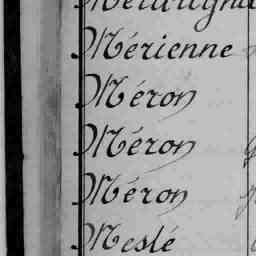 Mérienne
Méron
Méron
Méron
Meslé